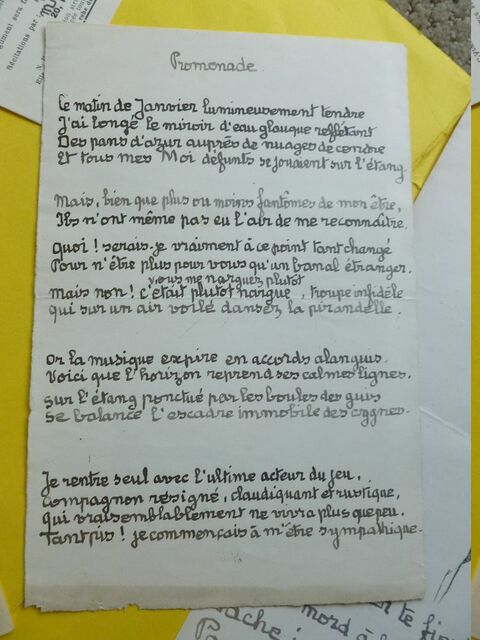 Promenade.
Ce matin de Janvier lumineusement tendre
J'ai longé le miroir d'eau glauque reflétant
Des pans d'azur auprès de nuages de cendre
Et tous mes Moi défunts se jouaient sur l'étang.
Mais, bien que plus ou moins fantômes de mon être,
Ils n'ont même pas eu l'air de me reconnaître.
Quoi ! serais-je vraiment à ce point tant changé
Pour n'être plus pour vous qu'un banal étranger.
vous me narguez plutôt
Mais non ! c'était plutôt nargue, troupe infidèle
qui sur un air voilé dansez la pirandelle.
Or la musique expire en accords alanguis.
Voici que l'horizon reprend ses calmes lignes.
Sur l'étang ponctué par les boules des guis
Se balance l'escadre immobile des cygnes.
Je rentre seul avec l'ultime acteur du jeu,
Compagnon résigné, claudiquant et rustique,
qui vraisemblablement ne vivra plus que peu.
Tant pis ! je commençais à m'être sympathique.
Récitations par
mord à